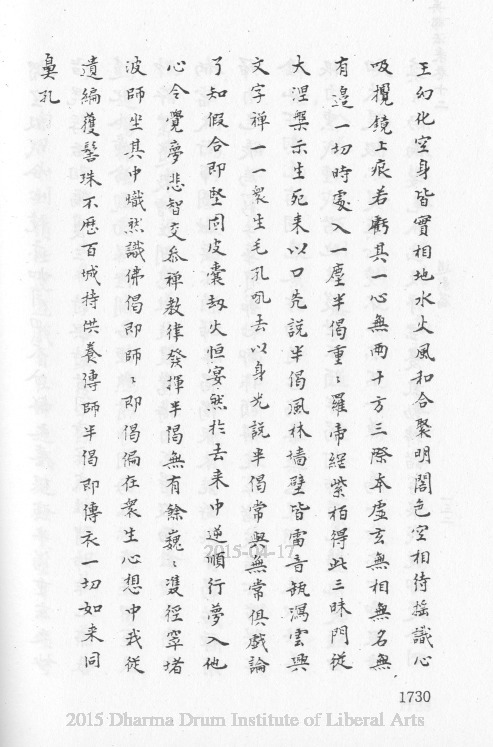 王幻化空身皆實相地水火風和合聚明闇色空相待搖識心
吸攪鏡上痕若虧其一心無兩十方三際本虛玄無相無名無
有邊一切時處入一塵半偈重〻羅帝網紫栢得此三昧門從
大涅槃示生死來以口光說半偈風林墻壁皆雷音瓶瀉雲興
文字禪一一衆生毛孔吼去以身光說半偈常與無常俱戲論
了知假合即堅固皮囊劫火恒宴然於去來中逆順行夢入他
心令覺夢悲智交參禪教律發揮半偈無有餘巍〻雙徑窣堵
波師坐其中熾然識佛偈即師〻即偈徧在衆生心想中我從
遺編獲髻珠不歷百城持供養傳師半偈即傳衣一切如来同
鼻孔
1730
2015-04-17
2015 Dharma Drum Institute of Liberal Arts